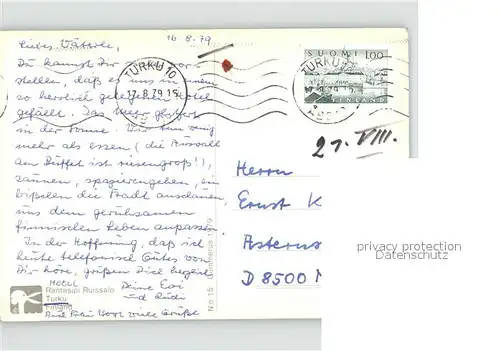 16.8.79
Liebes Väterle,
Du kannst Dir vor-
stellen, daß es uns in einem
so herrlich gelegenen Hotel
gefällt. Das Meer glitzert
in der Sonne. Wir tun wenig
mehr als essen (die Auswahl
am Büffet ist riesengroß!),
saunen, spazierengehen, ein
bißchen die Stadt anschauen
uns dem geruhsamen
finnischen Leben anpassen.
In der Hoffnung, daß ich
heute telefonisch Gutes von
Dir höre, grüßen Dich herzlich
Deine Evi
und Rudi
HOTEL
Rantasipi Ruissalo
Turku
Finland
viele Grüße
No 15
TURKU 10
17.-8.79 15
SUOMI 100
FINLAND
TURKU
21. VIII.
Herrn
Ernst K
Asterns
D 8500 N
privacy protection
Datenschutz